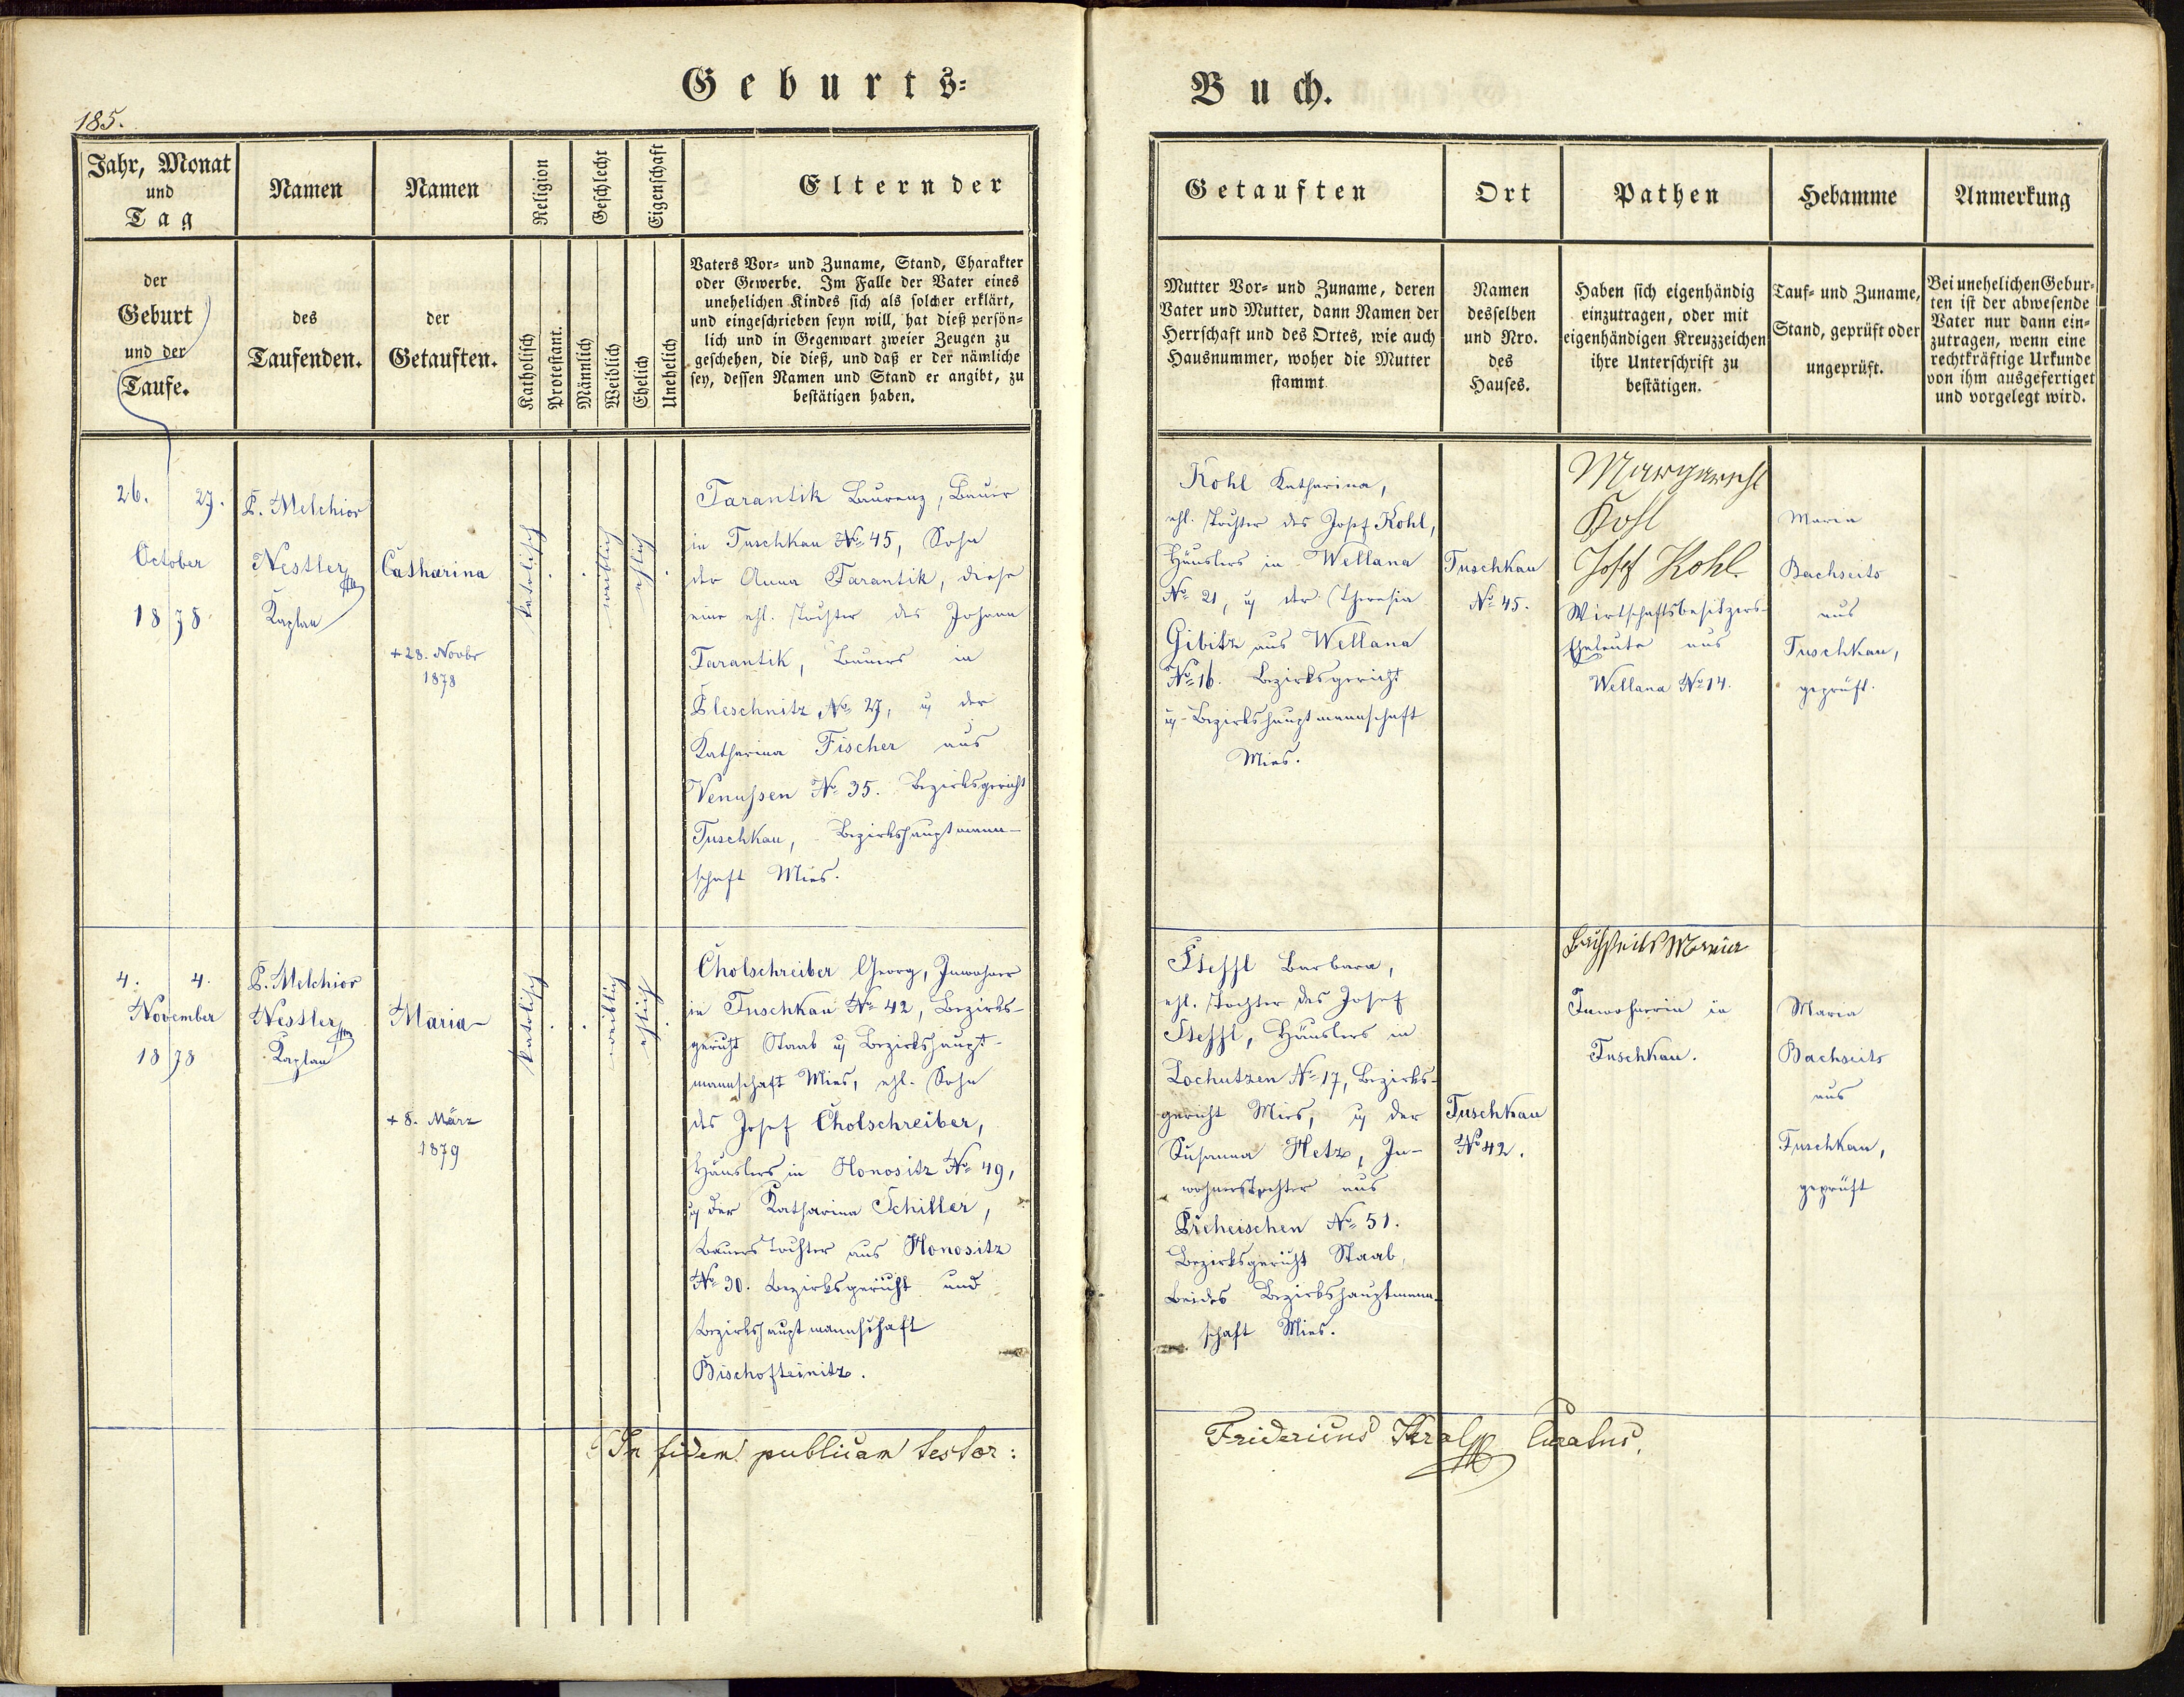 Geburts=
Buch.
185.
Jahr, Monat
und
Tag
der
Geburt
und der
Taufe.
Namen
des
Taufenden.
Namen
der
Getauften.
Religion
Katholisch
Protestant.
Geschlecht
Männlich
Weiblich
Eigenschaft
Ehelich
Unehelich
Eltern der
Vaters Vor= und Zuname, Stand, Charakter
oder Gewerbe. Im Falle der Vater eines
unehelichen Kindes sich als solcher erklärt,
und eingeschrieben seyn will, hat dieß persön=
lich und in Gegenwart zweier Zeugen zu
geschehen, die dieß, und daß er der nämliche
sey, dessen Namen und Stand er angibt, zu
bestätigen haben.
Getauften
Mutter Vor= und Zuname, deren
Vater und Mutter, dann Namen der
Herrschaft und des Ortes, wie auch
Hausnummer, woher die Mutter
stammt
Ort
Namen
desselben
und Nro.
des
Hauses.
Pathen
Haben sich eigenhändig
einzutragen, oder mit
eigenhändigen Kreuzzeichen
ihre Unterschrift zu
bestätigen.
Hebamme
Tauf= und Zuname,
Stand, geprüft oder
ungeprüft.
Anmerkung
Bei unehelichen Gebur=
ten ist der abwesende
Vater nur dann ein=
zutragen, wenn eine
rechtkräftige Urkunde
von ihm ausgefertiget
und vorgelegt wird.
26. 27.
October
1878
P. Melchior
Nestler
Kaplan
Catharina
+ 28. Novbr
1878
katolisch
weiblich
ehlich
Tarantik Laurenz, Bauer
in Tuschkau No 45, Sohn
der Anna Tarantik, diese
eine ehl. Tochter des Johann
Tarantik, Bauers in
Pleschnitz No 27, u der
Katharina Fischer aus
Wenussen No 35. Bezirksgericht
Tuschkau, Bezirkshauptmann-
schaft Mies.
Kohl Katharina,
ehl. Tochter des Josef Kohl,
Häuslers in Wellana
No 21, u der Theresia
Gibitz aus Wellana
No 16. Bezirksgericht
u Bezirkshauptmannschaft
Mies.
Tuschkau
No 45.
Margareth
Kohl
Josef Kohl
Wirtschaftsbesitzers-
Eheleute aus
Wellana No 14.
Maria
Bachseits
aus
Tuschkau,
geprüft.
4. 4.
November
1878
P. Melchior
Nestler
Kaplan
Maria
+ 8. März
1879
katolisch
weiblich
ehlich
Cholschreiber Georg, Inwohner
in Tuschkau No 42, Bezirks-
gericht Staab u Bezirkshaupt-
mannschaft Mies, ehl. Sohn
des Josef Cholschreiber,
Häuslers in Honositz No 49,
u der Katharina Schiller,
Bauers Tochter aus Honositz
No 30. Bezirksgericht und
Bezirkshauptmannschaft
Bischofteinitz.
Barbara,
ehl. Tochter des Josef
Häuslers in
Lochutzen No 17, Bezirks-
gericht Mies, u der
Susanna Metz, In-
wohnerstochter aus
Prcheischen No 51.
Bezirksgericht Staab,
beides Bezirkshauptmann-
schaft Mies.
Tuschkau
No 42.
Bachseits Maria
Inwohnerin in
Tuschkau.
Maria
Bachseits
aus
Tuschkau,
geprüft
In fidem publicam testor:
Fridericus Kral Curatus.